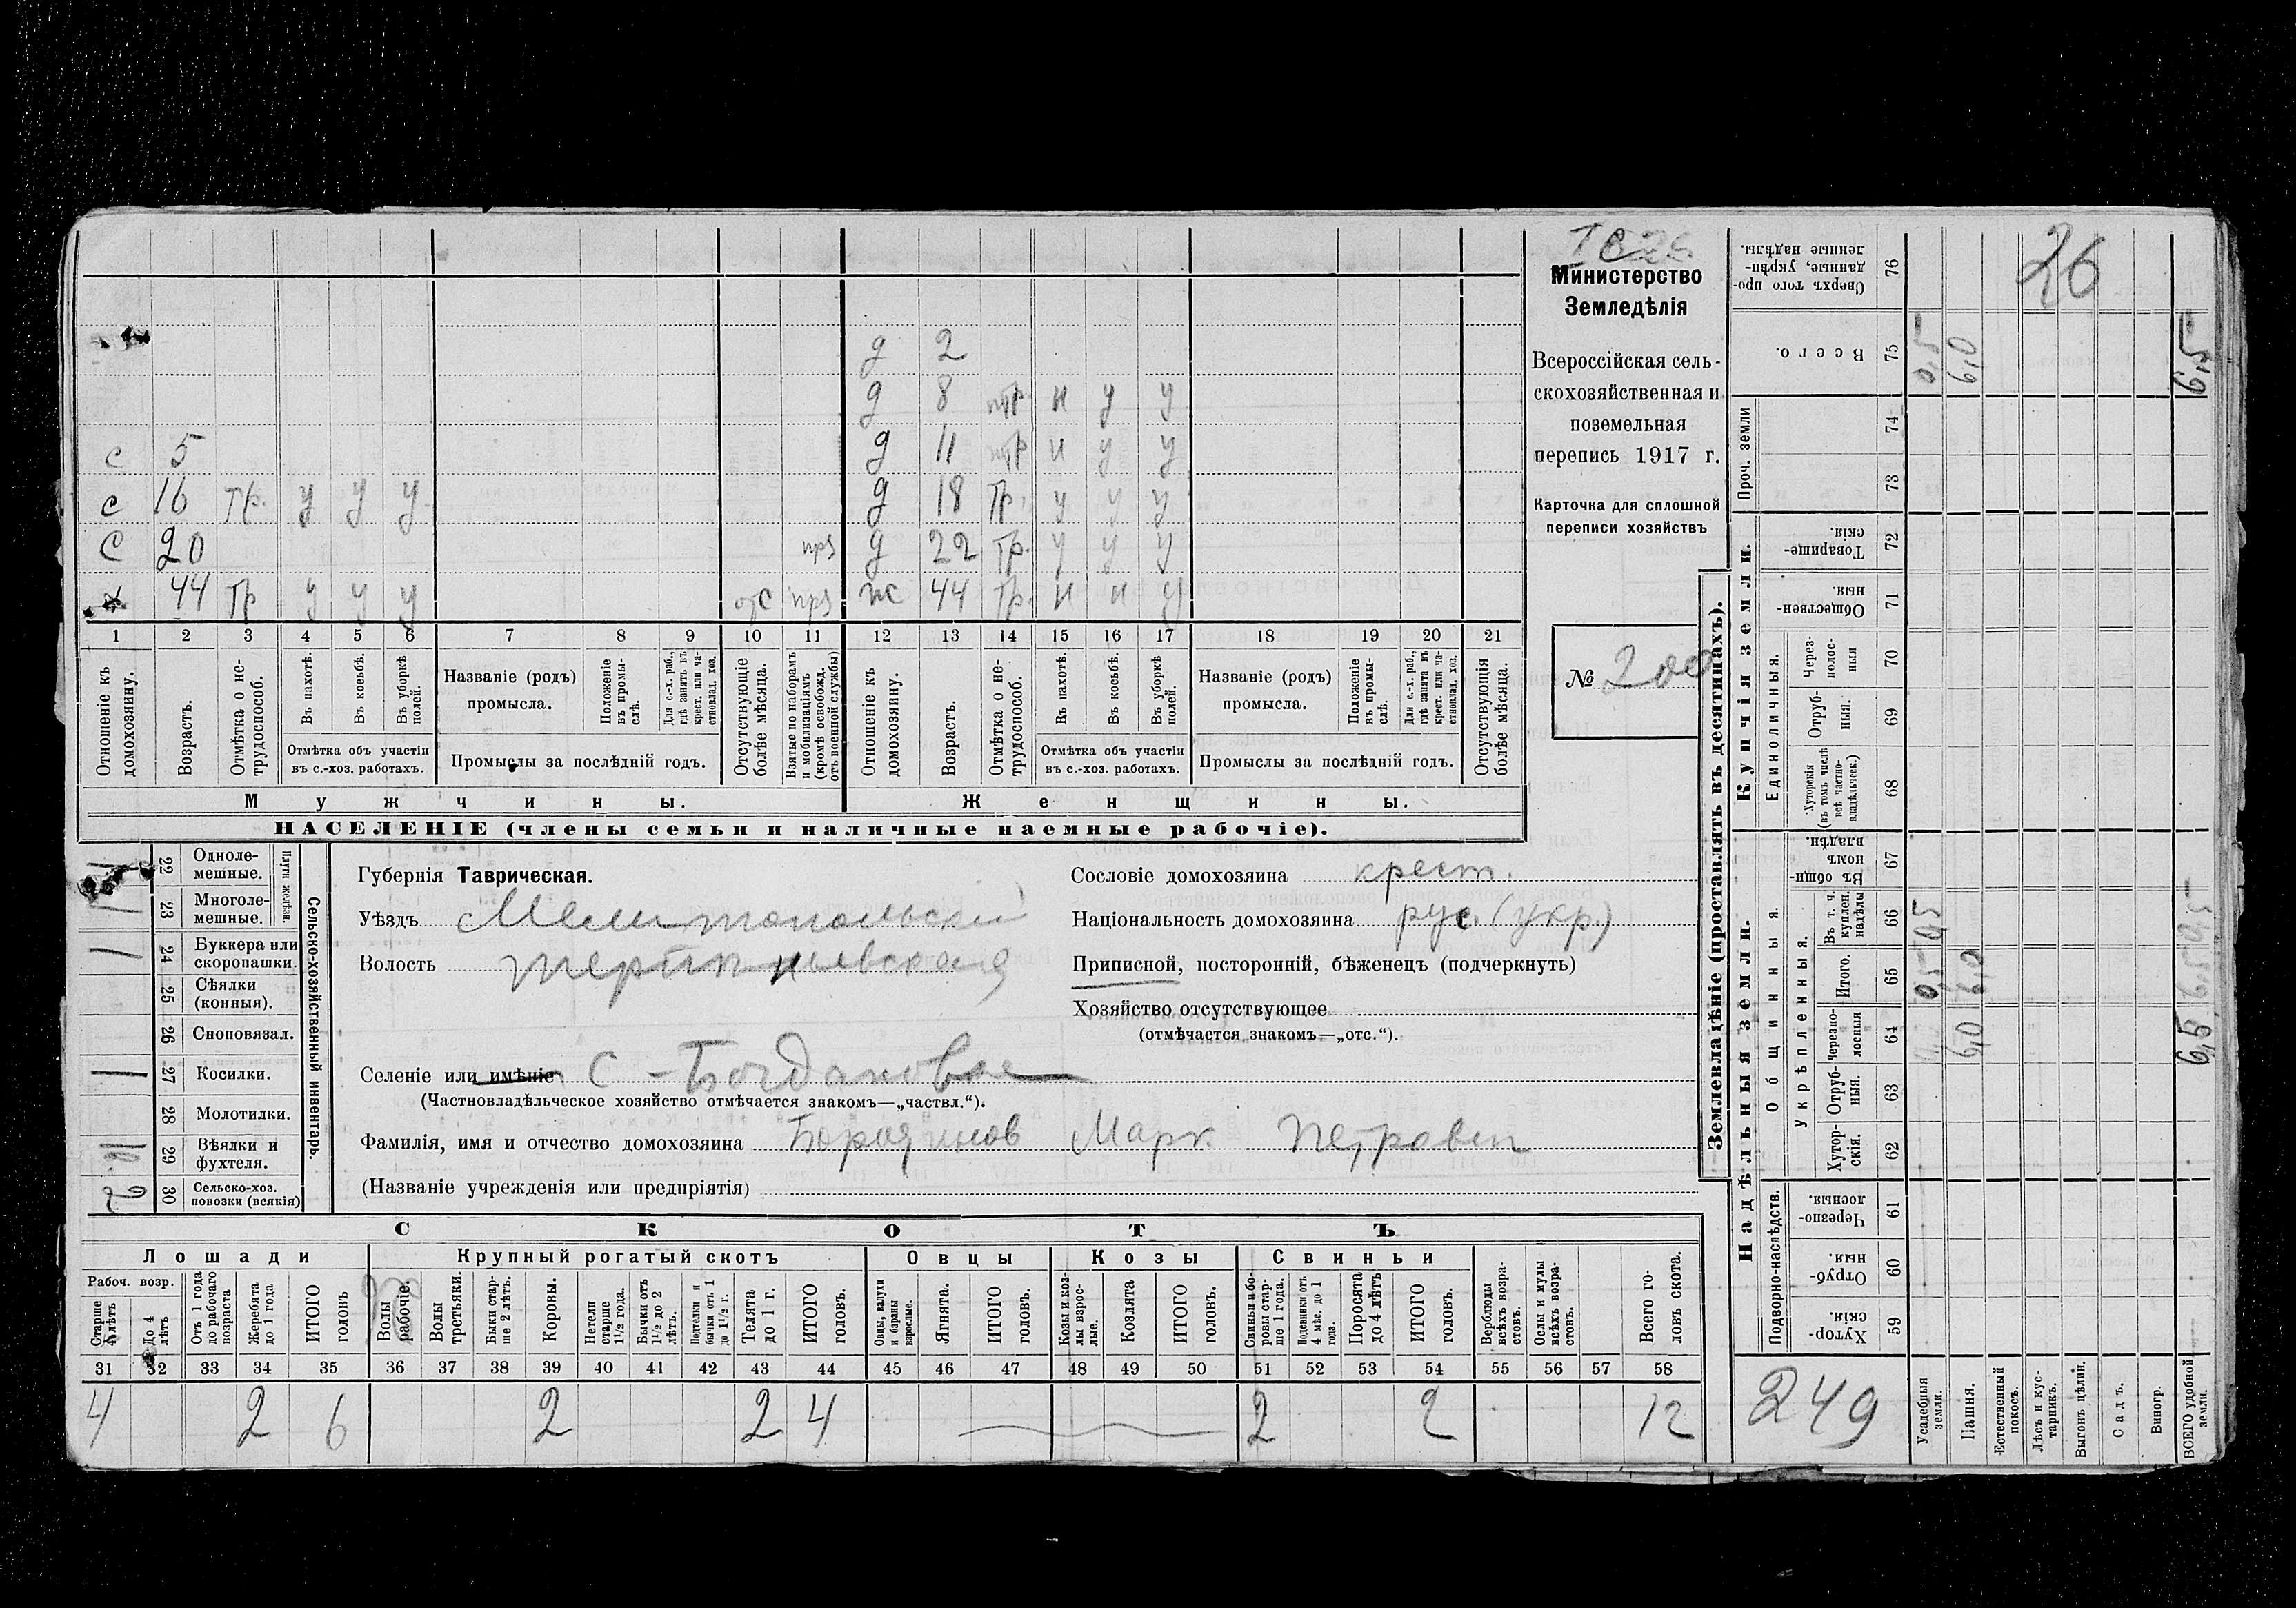 26
Министерство
Земледѣлія
Всероссійская сель-
скохозяйственная и
поземельная
перепись 1917 г.
Карточка для сплошной
переписи хозяйствъ
№ 200
д 2
д 8 птр н у у
с 5 д 11 птр н у у
с 16 тр. у у у д 18 тр. у у у
с 20 прз д 22 тр. у у у
44 тр у у у отс прз ж 44 тр. н н у
1 2 3 4 5 6 7 8 9 10 11 12 13 14 15 16 17 18 19 20 21
Отношеніе къ домохозяину.
Возрастъ.
Отмѣтка о не-трудоспособ.
Въ пахотѣ.
Въ косьбѣ.
Въ уборкѣ полей.
Отмѣтка объ участіи
въ с.-хоз. работахъ.
Названіе (родъ)
промысла.
Положеніе въ промы-слѣ.
Для с.-х. раб., гдѣ занятъ въ крест. или ча-стновлад. хоз.
Промыслы за послѣдній годъ.
Отсутствующіе болѣе мѣсяца.
Взятые по наборамъ и мобилизаціямъ (кромѣ освобожд. отъ военной службы)
Отношеніе къ домохозяину.
Возрастъ.
Отмѣтка о не-трудоспособ.
Въ пахотѣ.
Въ косьбѣ.
Въ уборкѣ полей.
Отмѣтка объ участіи
въ с.-хоз. работахъ.
Названіе (родъ)
промысла.
Положеніе въ промы-слѣ.
Для с.-х. раб., гдѣ занята въ крест. или ча-стновлад. хоз.
Промыслы за послѣдній годъ.
Отсутствующія болѣе мѣсяца.
Мужчины.
Женщины.
НАСЕЛЕНІЕ (члены семьи и наличные наемные рабочіе).
22 Одноле-мешные.
23 Многоле-мешные.
Плуги желѣзн.
1 24 Буккера или скоропашки.
25 Сѣялки (конныя).
26 Сноповязал.
1 27 Косилки.
28 Молотилки.
29 Вѣялки и фухтеля.
2 30 Сельско-хоз. повозки (всякія)
Сельско-хозяйственный инвентарь.
Губернія Таврическая.
Уѣздъ Мелитопольский
Волость Терпиньевская
Селеніе или имѣніе С - Богдановка
(Частновладѣльческое хозяйство отмѣчается знакомъ—„частвл.“).
Фамилія, имя и отчество домохозяина Бородинов Марк Петрович
(Названіе учрежденія или предпріятія)
Сословіе домохозяина крест.
Національность домохозяина рус. (укр.)
Приписной, посторонній, бѣженецъ (подчеркнуть)
Хозяйство отсутствующее
(отмѣчается знакомъ—„отс.“).
СКОТЪ
Лошади
Крупный рогатый скотъ
Овцы
Козы
Свиньи
Рабоч. возр.
Старше 4 лѣтъ
До 4 лѣтъ
Отъ 1 года до рабочаго возраста
Жеребята до 1 года
ИТОГО головъ
Волы рабочіе.
Волы третьяки.
Быки стар-ше 2 лѣтъ.
Коровы.
Нетели старше 1½ года.
Бычки отъ 1½ до 2 лѣтъ.
Подтелки и бычки отъ 1 до 1½ г.
Телята до 1 г.
ИТОГО головъ.
Овцы, валухи и бараны взрослые.
Ягнята.
ИТОГО головъ.
Козы и коз-лы взрос-лые.
Козлята
ИТОГО головъ.
Свиньи и бо-ровы стар-ше 1 года.
Подсвинки отъ 4 мѣс. до 1 года.
Поросята до 4 лѣтъ
ИТОГО головъ.
Верблюды всѣхъ возра-стовъ.
Ослы и мулы всѣхъ возра-стовъ.
Всего го-ловъ скота.
31 32 33 34 35 36 37 38 39 40 41 42 43 44 45 46 47 48 49 50 51 52 53 54 55 56 57 58
4 2 6 2 2 4 2 2 12
Землевладѣніе (проставлять въ десятинахъ).
Надѣльныя земли.
Купчія земли.
Проч. земли
Сверхъ того про-данные, укрѣп-ленные надѣлы. 76
Всего. 75 0,5 6,0 6,5
74
73
Товарище-скія. 72
Обществен-ныя. 71
Единоличныя.
Через-полос-ныя 70
Отруб-ныя. 69
Хуторскія (въ томъ числѣ всѣ частно-владѣльческ.) 68
Общинныя.
Въ общи-номъ владѣн. 67
Укрѣпленныя.
Въ т. ч. куплен. надѣлы 66
Итого. 65 0,5 6,0
Черезпо-лосныя 64 6,0 6,5
Отруб-ныя. 63
Хутор-скія. 62
Подворно-наслѣдств.
Черезпо-лосныя. 61
Отруб-ныя. 60
Хутор-скія. 59
249
Усадебныя земли.
Пашня.
Естественный покосъ.
Лѣсъ и кус-тарникъ.
Выгонъ цѣлин.
Садъ.
Виногр.
ВСЕГО удобной земли.